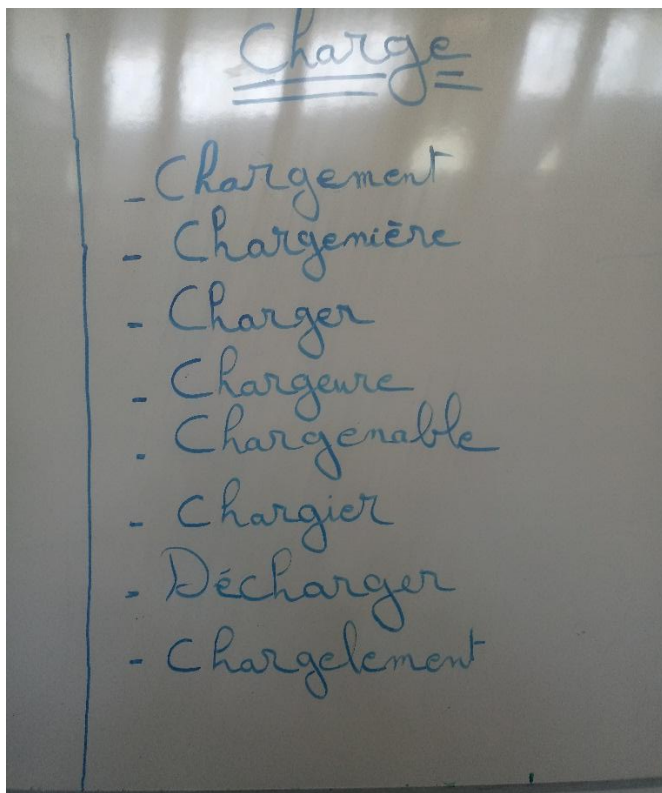 Charge
- Chargement
- Chargemière
- Charger
- Chargeure
- Chargenable
- Chargier
- Décharger
- Chargelement